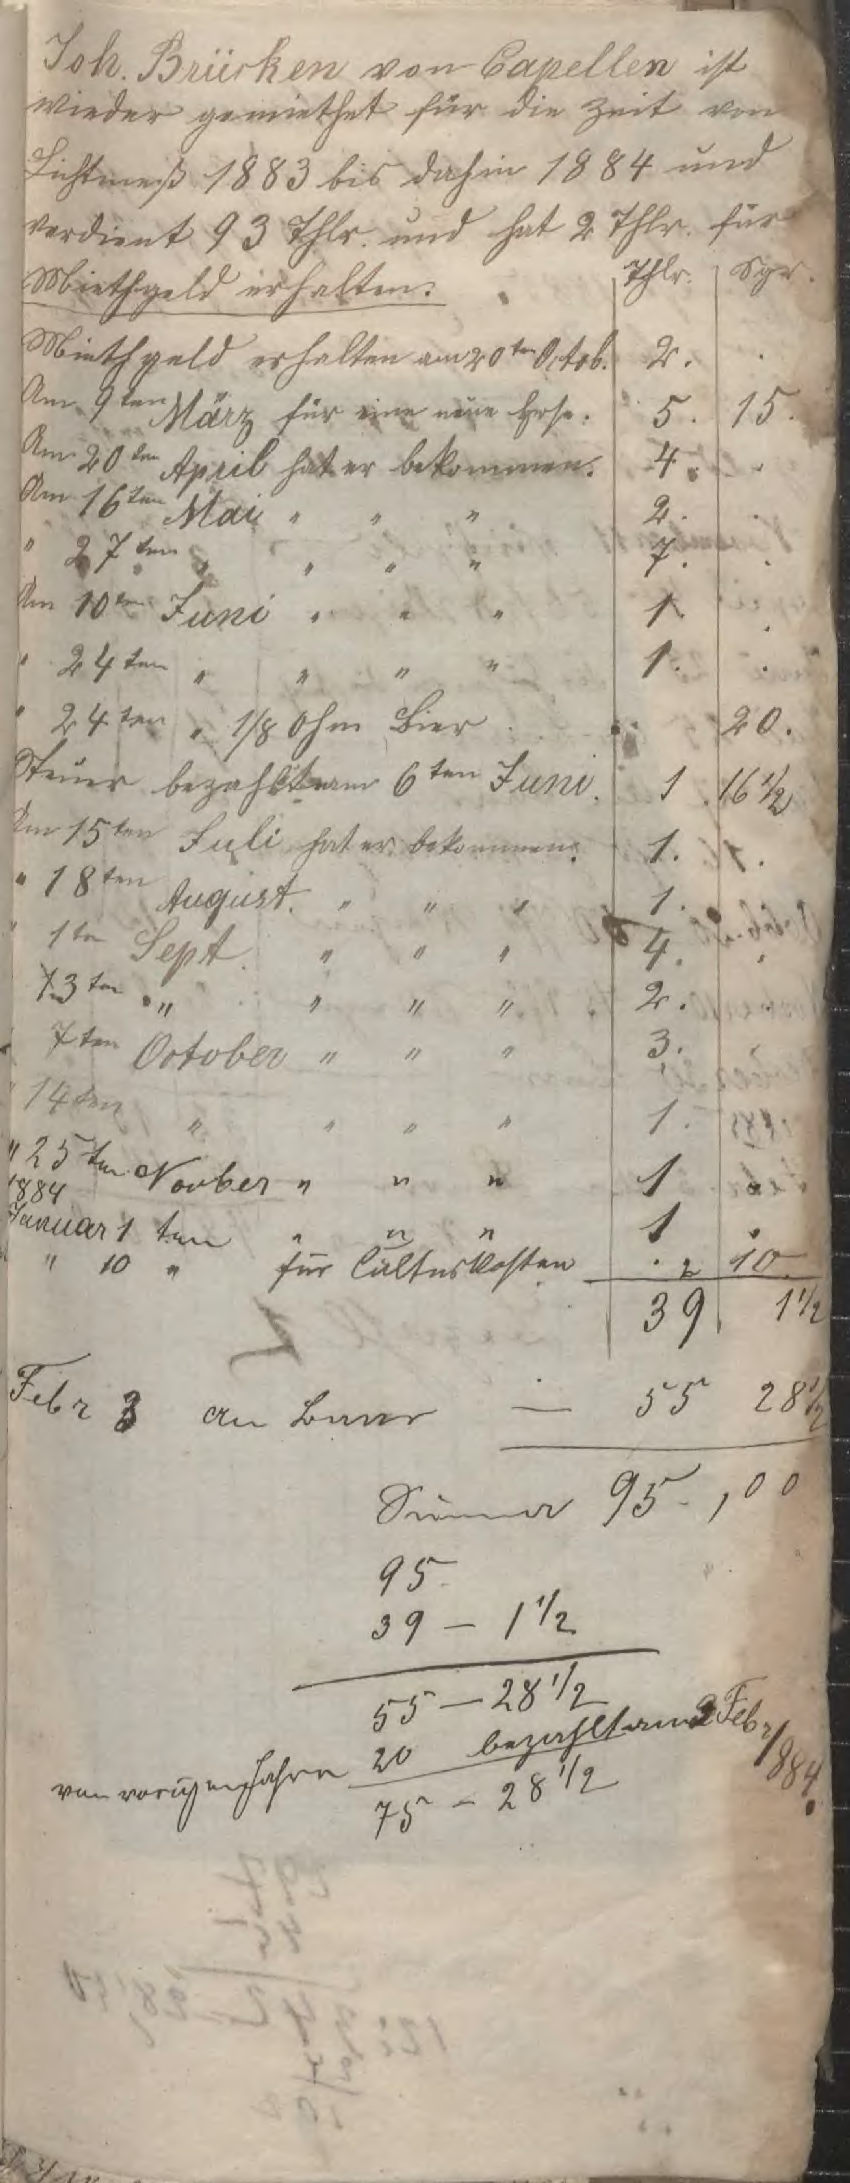 Joh. Brücken von Capellen ist
wieder gemiethet für die Zeit von
Lichtmeß 1883 bis dahin 1884 und
verdient 93 Thlr. und hat 2 Thlr. für
Miethgeld erhalten.
Thlr. Sgr.
Miethgeld erhalten am 20ten Octob. 2. .
Am 9ten März für eine neue Hose. 5. 15.
Am 20ten April hat er bekommen. 4. .
Am 16ten Mai " " " 2. .
" 27ten " " " " 7. .
Am 10ten Juni " " " 1 .
" 24ten " " " " 1. .
" 24ten " 1/8 Ohm Bier . 20.
Steuer bezahlt am 6ten Juni. 1 16 1/2
Am 15ten Juli hat er bekommen. 1. .
" 18ten August. " " " 1.
" 1ten Sept. " " " 4. .
13ten " " " " 2.
7ten October " " " 3.
" 14ten " " " " 1.
" 25ten Novber " " " 1 .
1884
Januar 1ten " " " 1 .
" 10 " für Cultuskosten . 2 10
39 1 1/2
Febr 3 an — 55 28 1/2
Summa 95 - , 00
95
39 — 1 1/2
55 — 28 1/2
von vorigen Jahre 20 bezahlt am 2 Febr/1884.
75 — 28 1/2